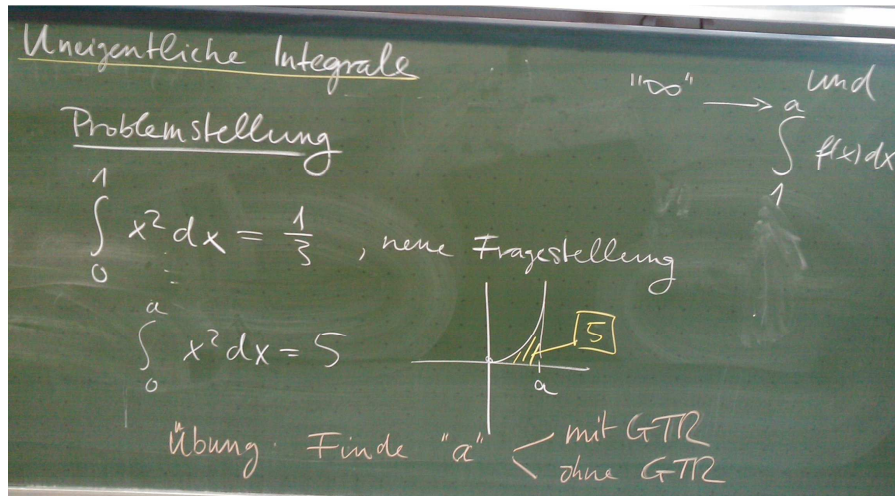 Uneigentliche Integrale
"∞" → und
Problemstellung
∫₁ᵃ f(x)dx
∫₀¹ x² dx = 1/3 , neue Fragestellung
∫₀ᵃ x² dx = 5
5
a
Übung. Finde "a"
mit GTR
ohne GTR